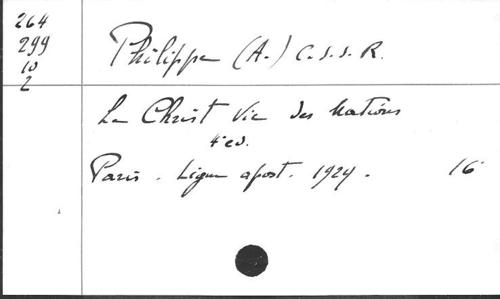 264
299
10
2
Philippe (A.) C.S.S.R.
Le Christ Vie des Nations
4e ed.
Paris. Ligue apost. 1924.
16°